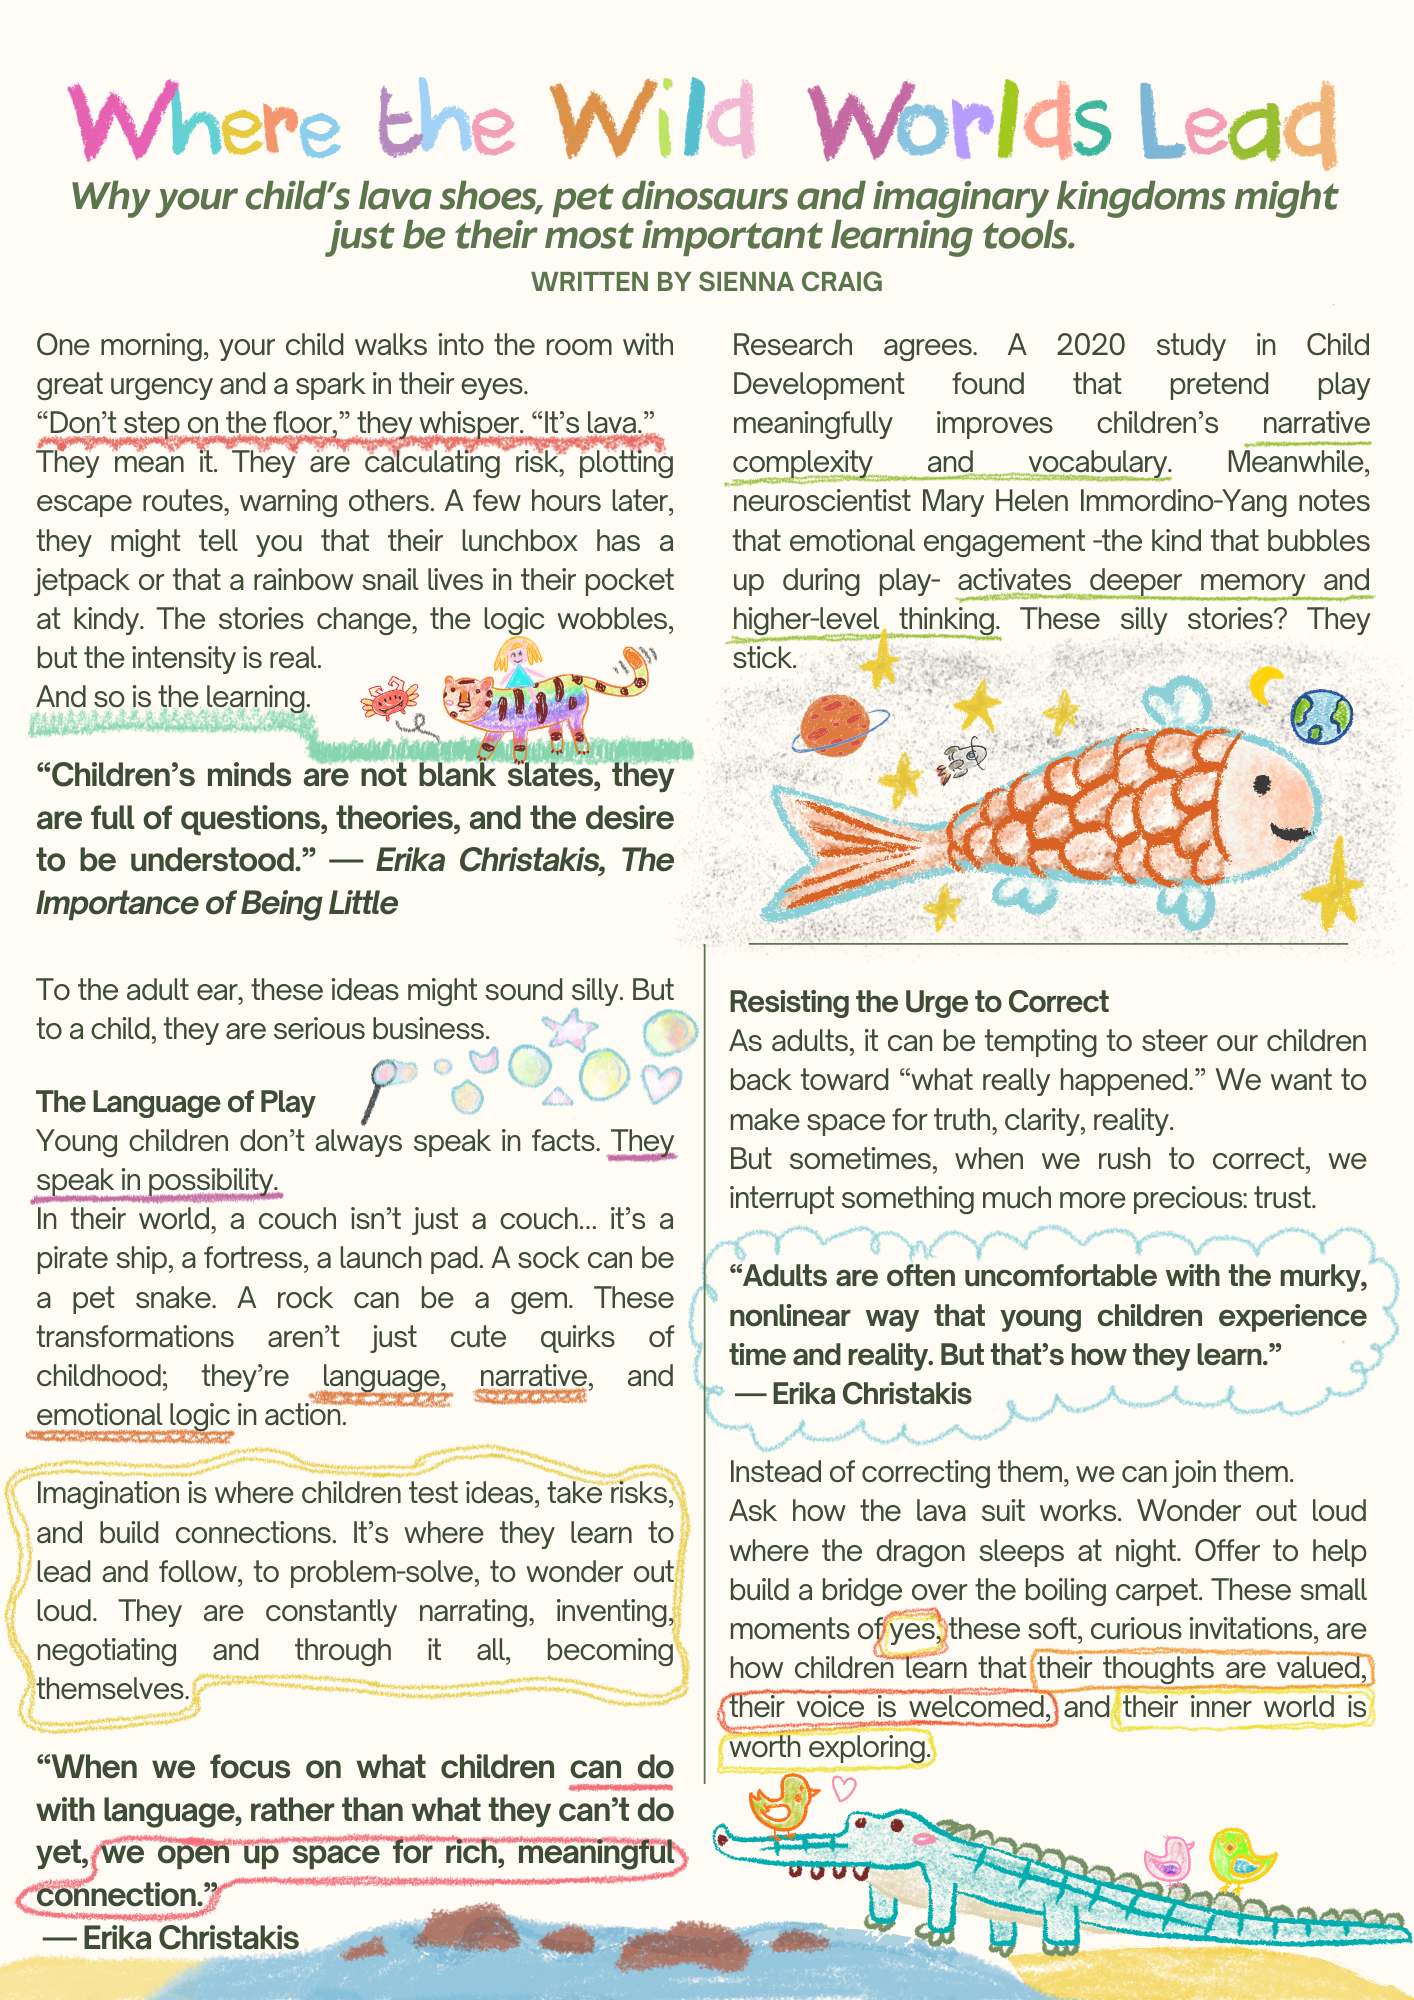 Where the Wild Worlds Lead
Why your child's lava shoes, pet dinosaurs and imaginary kingdoms might
just be their most important learning tools.
WRITTEN BY SIENNA CRAIG
One morning, your child walks into the room with
great urgency and a spark in their eyes.
“Don't step on the floor,” they whisper. “It's lava.”
They mean it. They are calculating risk, plotting
escape routes, warning others. A few hours later,
they might tell you that their lunchbox has a
jetpack or that a rainbow snail lives in their pocket
at kindy. The stories change, the logic wobbles,
but the intensity is real.
And so is the learning.
“Children's minds are not blank slates, they
are full of questions, theories, and the desire
to be understood.” — Erika Christakis, The
Importance of Being Little
To the adult ear, these ideas might sound silly. But
to a child, they are serious business.
The Language of Play
Young children don't always speak in facts. They
speak in possibility.
In their world, a couch isn't just a couch... it's a
pirate ship, a fortress, a launch pad. A sock can be
a pet snake. A rock can be a gem. These
transformations aren't just cute quirks of
childhood; they're language, narrative, and
emotional logic in action.
Imagination is where children test ideas, take risks,
and build connections. It's where they learn to
lead and follow, to problem-solve, to wonder out
loud. They are constantly narrating, inventing,
negotiating and through it all, becoming
themselves.
“When we focus on what children can do
with language, rather than what they can't do
yet, we open up space for rich, meaningful
connection.”
— Erika Christakis
Research agrees. A 2020 study in Child
Development found that pretend play
meaningfully improves children's narrative
complexity and vocabulary. Meanwhile,
neuroscientist Mary Helen Immordino-Yang notes
that emotional engagement -the kind that bubbles
up during play- activates deeper memory and
higher-level thinking. These silly stories? They
stick.
Resisting the Urge to Correct
As adults, it can be tempting to steer our children
back toward “what really happened.” We want to
make space for truth, clarity, reality.
But sometimes, when we rush to correct, we
interrupt something much more precious: trust.
“Adults are often uncomfortable with the murky,
nonlinear way that young children experience
time and reality. But that's how they learn.”
— Erika Christakis
Instead of correcting them, we can join them.
Ask how the lava suit works. Wonder out loud
where the dragon sleeps at night. Offer to help
build a bridge over the boiling carpet. These small
moments of yes, these soft, curious invitations, are
how children learn that their thoughts are valued,
their voice is welcomed, and their inner world is
worth exploring.